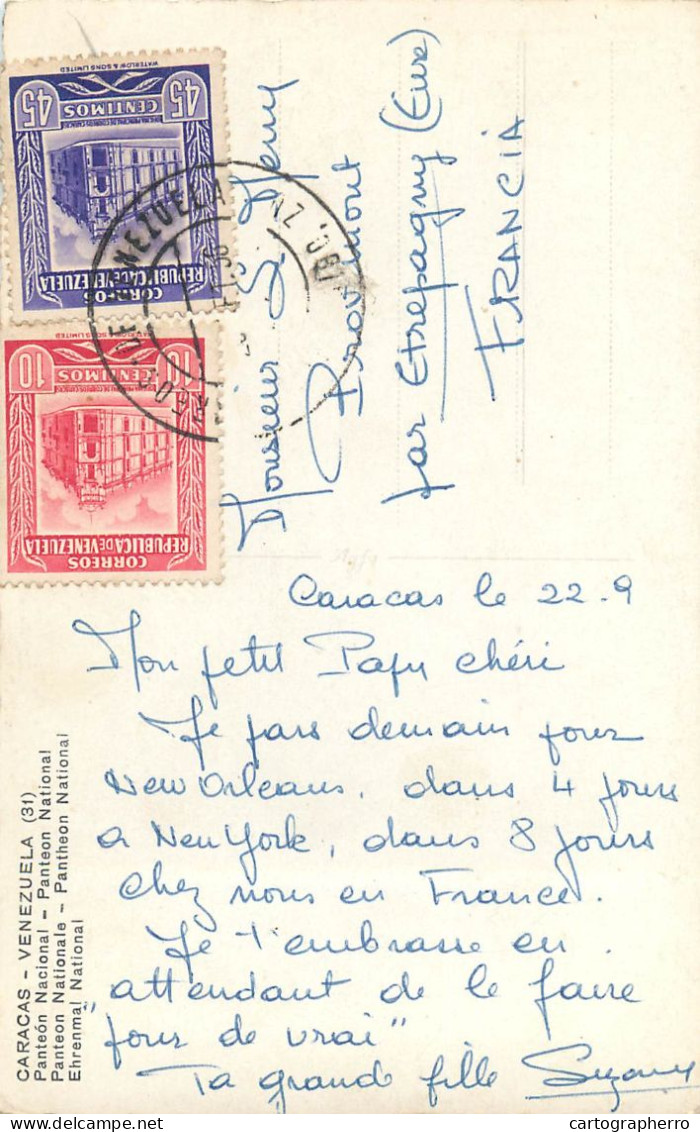 CORREOS
REPUBLICA DE VENEZUELA
45 CENTIMOS 45
WATERLOW & SONS LIMITED
CORREOS
REPUBLICA DE VENEZUELA
10 CENTIMOS 10
WATERLOW & SONS LIMITED
Monsieur
Provemont
par Etrepagny (Eure)
FRANCIA
Caracas le 22-9
Mon petit Papy chéri
Je pars demain pour
New Orleans, dans 4 jours
a New York, dans 8 jours
chez nous en France.
Je t'embrasse en
attendant de le faire
"pour de vrai"
Ta grande fille Suzany
CARACAS - VENEZUELA (31)
Panteón Nacional - Panteon National
Panteon Nationale - Pantheon National
Ehrenmal National
cartographerro